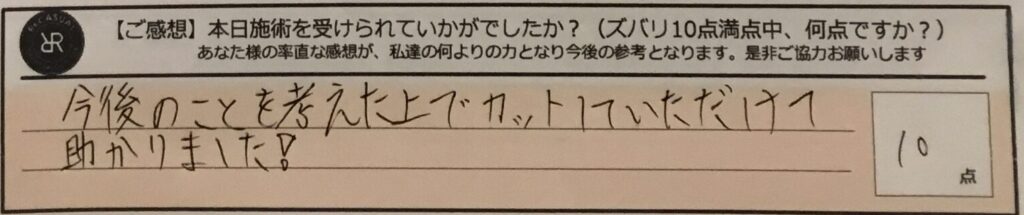 【ご感想】本日施術を受けられていかがでしたか？（ズバリ10点満点中、何点ですか？）
あなた様の率直な感想が、私達の何よりの力となり今後の参考となります。是非ご協力お願いします
今後のことを考えた上でカットしていただけて
助かりました!
10
点